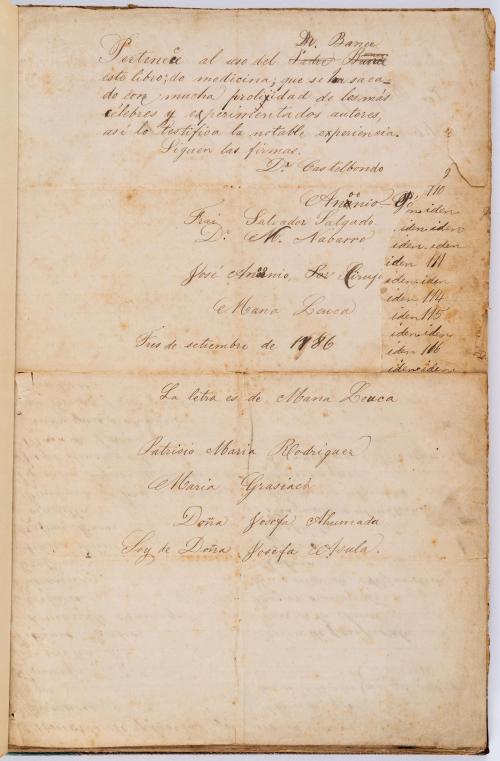 Dr. Bance
Pertenece al uso del
este libro; do medicina; que se ha saca-
do con mucha prolixidad de los más
célebres y experimentados autores,
así lo testifica la notable experiencia.
Siguen las firmas.
Dr Castelbondo
Antonio
Frai Salvador Salgado
Dr M. Nabarro
José Antonio
Maria Leuca
Tres de setiembre de 1786
9
110
iden
iden iden
iden iden
iden 111
iden iden
iden 114
iden 115
iden iden
iden 116
iden iden
La letra es de Maria Leuca
Patrisio Maria Rodriguez
Maria
Doña Josefa Ahumada
Soy de Doña Josefa